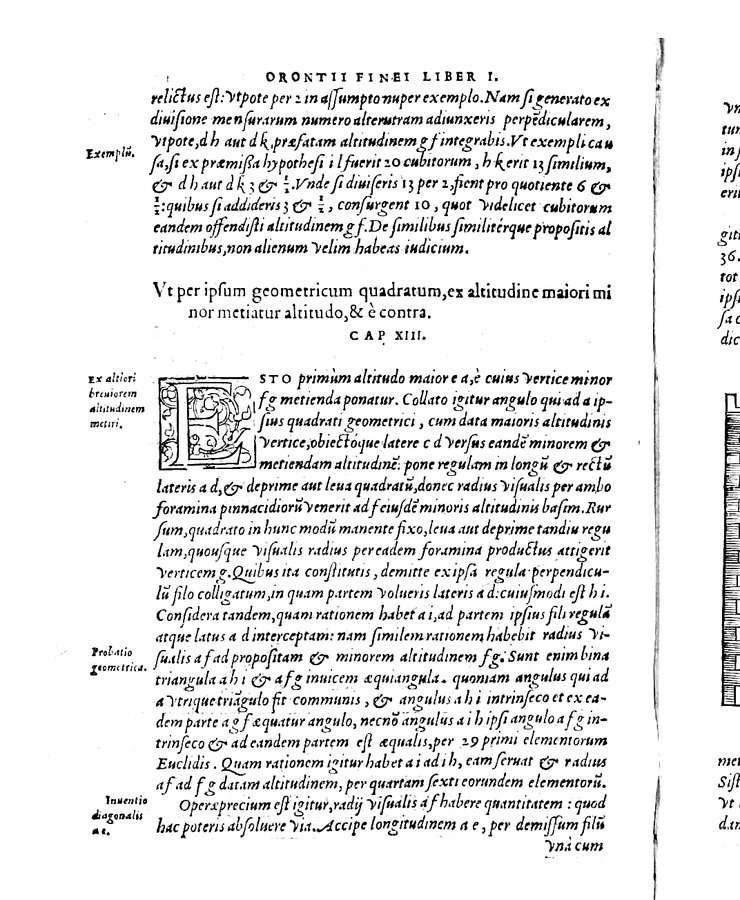 ORONTII FINEI LIBER I.
relictus est: vtpote per 2 in assumpto nuper exemplo. Nam si generato ex
diuisione mensurarum numero alterutram adiunxeris perpēdicularem,
Exemplū.
vtpote, d h aut d k, præfatam altitudinem g f integrabis. Vt exempli cau
sa, si ex præmissa hypothesi i l fuerit 20 cubitorum, h k erit 13 similium,
& d h aut d k 3 & 1/2. Vnde si diuiseris 13 per 2, fient pro quotiente 6 &
1/2: quibus si addideris 3 & 1/2, consurgent 10, quot videlicet cubitorum
eandem offendisti altitudinem g f. De similibus similitérque propositis al
titudinibus, non alienum velim habeas iudicium.
Vt per ipsum geometricum quadratum, ex altitudine maiori mi
nor metiatur altitudo, & è contra.
CAP XIII.
Ex altiori
breuiorem
altitudinem
metiri.
ESTO primùm altitudo maior e a, è cuius vertice minor
f g metienda ponatur. Collato igitur angulo qui ad a ip-
sius quadrati geometrici, cum data maioris altitudinis
vertice, obiectóque latere c d versus eandē minorem &
metiendam altitudinē: pone regulam in longū & rectū
lateris a d, & deprime aut leua quadratū, donec radius visualis per ambo
foramina pinnacidiorū venerit ad f eiusdē minoris altitudinis basim. Rur
sum, quadrato in hunc modū manente fixo, leua aut deprime tandiu regu
lam, quousque visualis radius per eadem foramina productus attigerit
verticem g. Quibus ita constitutis, demitte ex ipsa regula perpendicu-
lū filo colligatum, in quam partem volueris lateris a d: cuiusmodi est h i.
Considera tandem, quam rationem habet a i, ad partem ipsius fili regulā
atque latus a d interceptam: nam similem rationem habebit radius vi-
Probatio
geometrica.
sualis a f ad propositam & minorem altitudinem f g. Sunt enim bina
triangula a h i & a f g inuicem æquiangula. quoniam angulus qui ad
a vtrique triāgulo fit communis, & angulus a h i intrinseco et ex ea-
dem parte a g f æquatur angulo, necnō angulus a i h ipsi angulo a f g in-
trinseco & ad eandem partem est æqualis, per 29 primi elementorum
Euclidis. Quam rationem igitur habet a i ad i h, eam seruat & radius
a f ad f g datam altitudinem, per quartam sexti eorundem elementorū.
Inuentio
diagonalis
a e.
Operæprecium est igitur, radij visualis a f habere quantitatem: quod
hac poteris absoluere via. Accipe longitudinem a e, per demissum filū
vnà cum